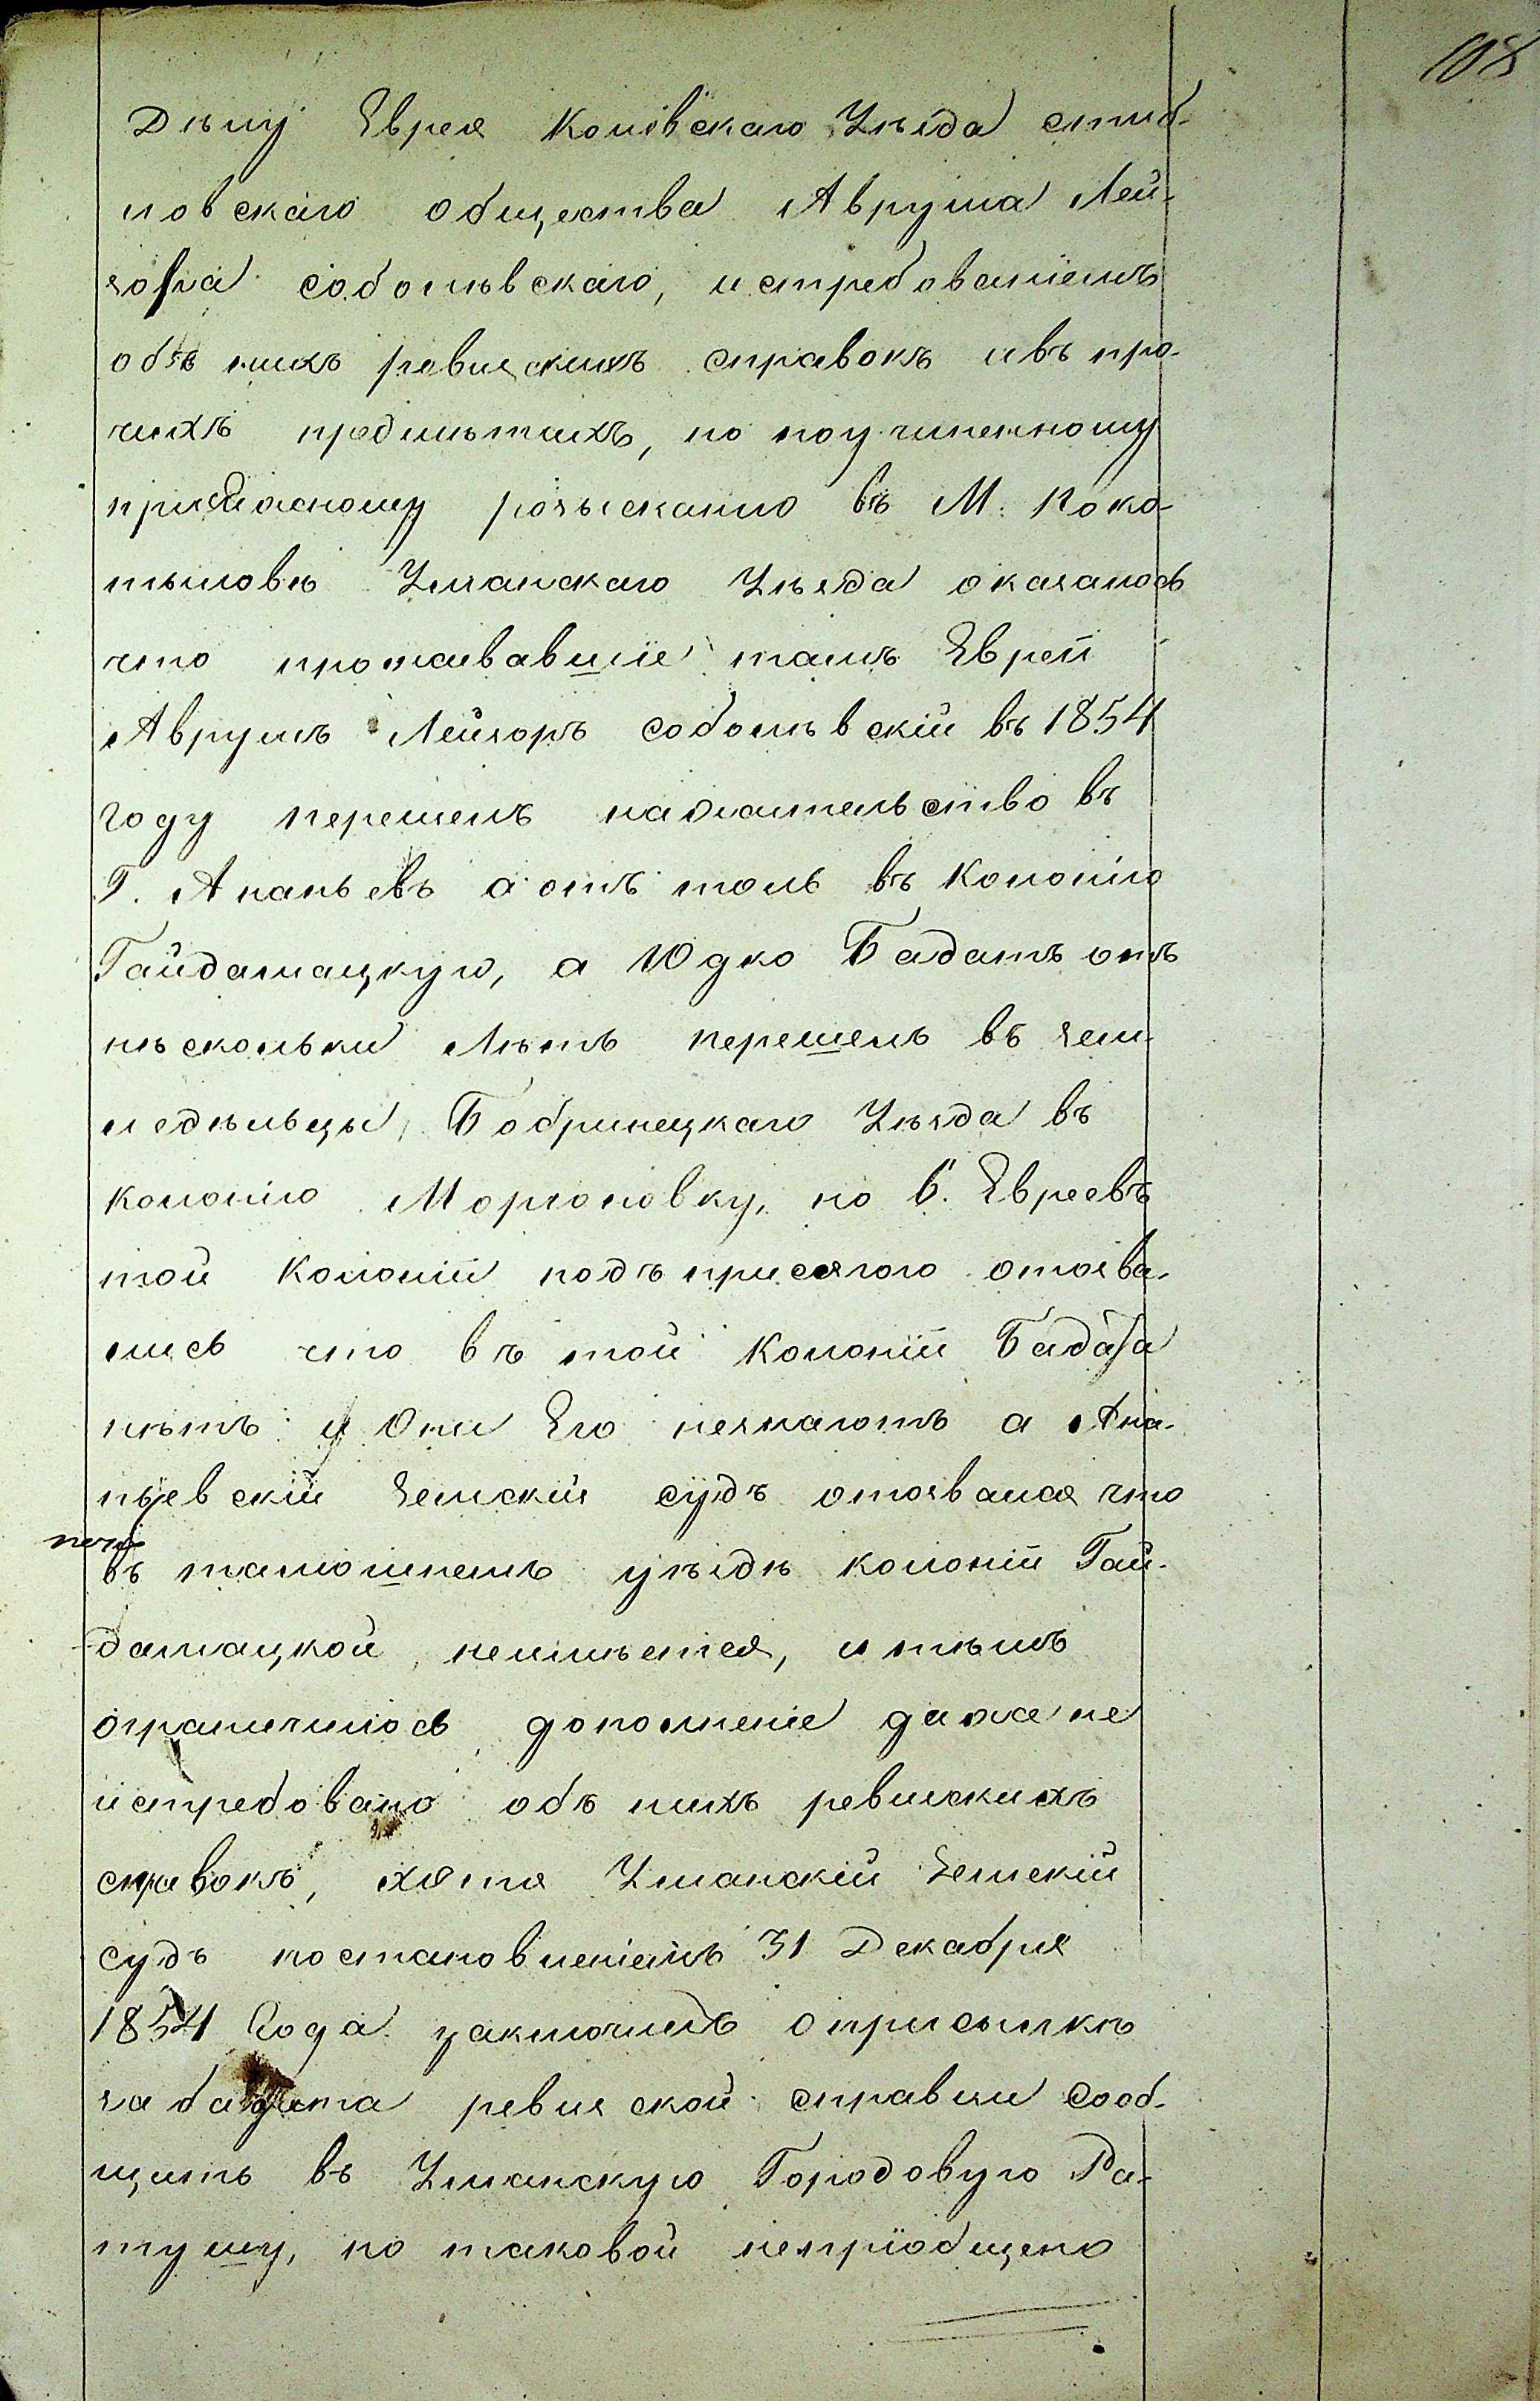 108
Дѣлу Еврея Коневскаго Уѣзда стиб-
ловскаго общества Аврума Лей-
зора соболевскаго, истребованіемъ
объ нихъ ревизскихъ справокъ ивъ про-
чихъ предметахъ, но поучиненному
присяжному розысканію въ М. Поко-
тыловѣ Уманскаго Уѣзда оказалось
что проживавшіе тамъ Евреи
Аврумъ Лейзоръ соболѣвскій въ 1854
году перешелъ нажительство въ
Г. Ананьевъ а отъ толь въ Колонію
Гайдамацкую, а Юдко Бадатъ отъ
нѣскольки Лѣтъ перешелъ въ зем-
ледѣльцы Бобринецкаго Уѣзда въ
колонію Моргоновку, но 6. Евреевъ
той Колоніи подъ присягою отозва-
лись что въ той Колоніи Бадата
нѣтъ и Они Его незнаютъ а Ана-
ньевскій Земскій судъ отозвался что
въ тамошнемъ уѣздѣ колоніи Гай-
дамацкой неимѣется, и тѣмъ
ограничилось дополненіе даже не
истребовано объ нихъ ревизскихъ
справокъ, хотя Уманскій Земскій
судъ постановленіемъ 31 Декабря
1854 Года заключилъ оприсылкѣ
за бадата ревизской справки Сооб-
щить въ Уманскую Городовую Ра-
тушу, но таковой непріобщено